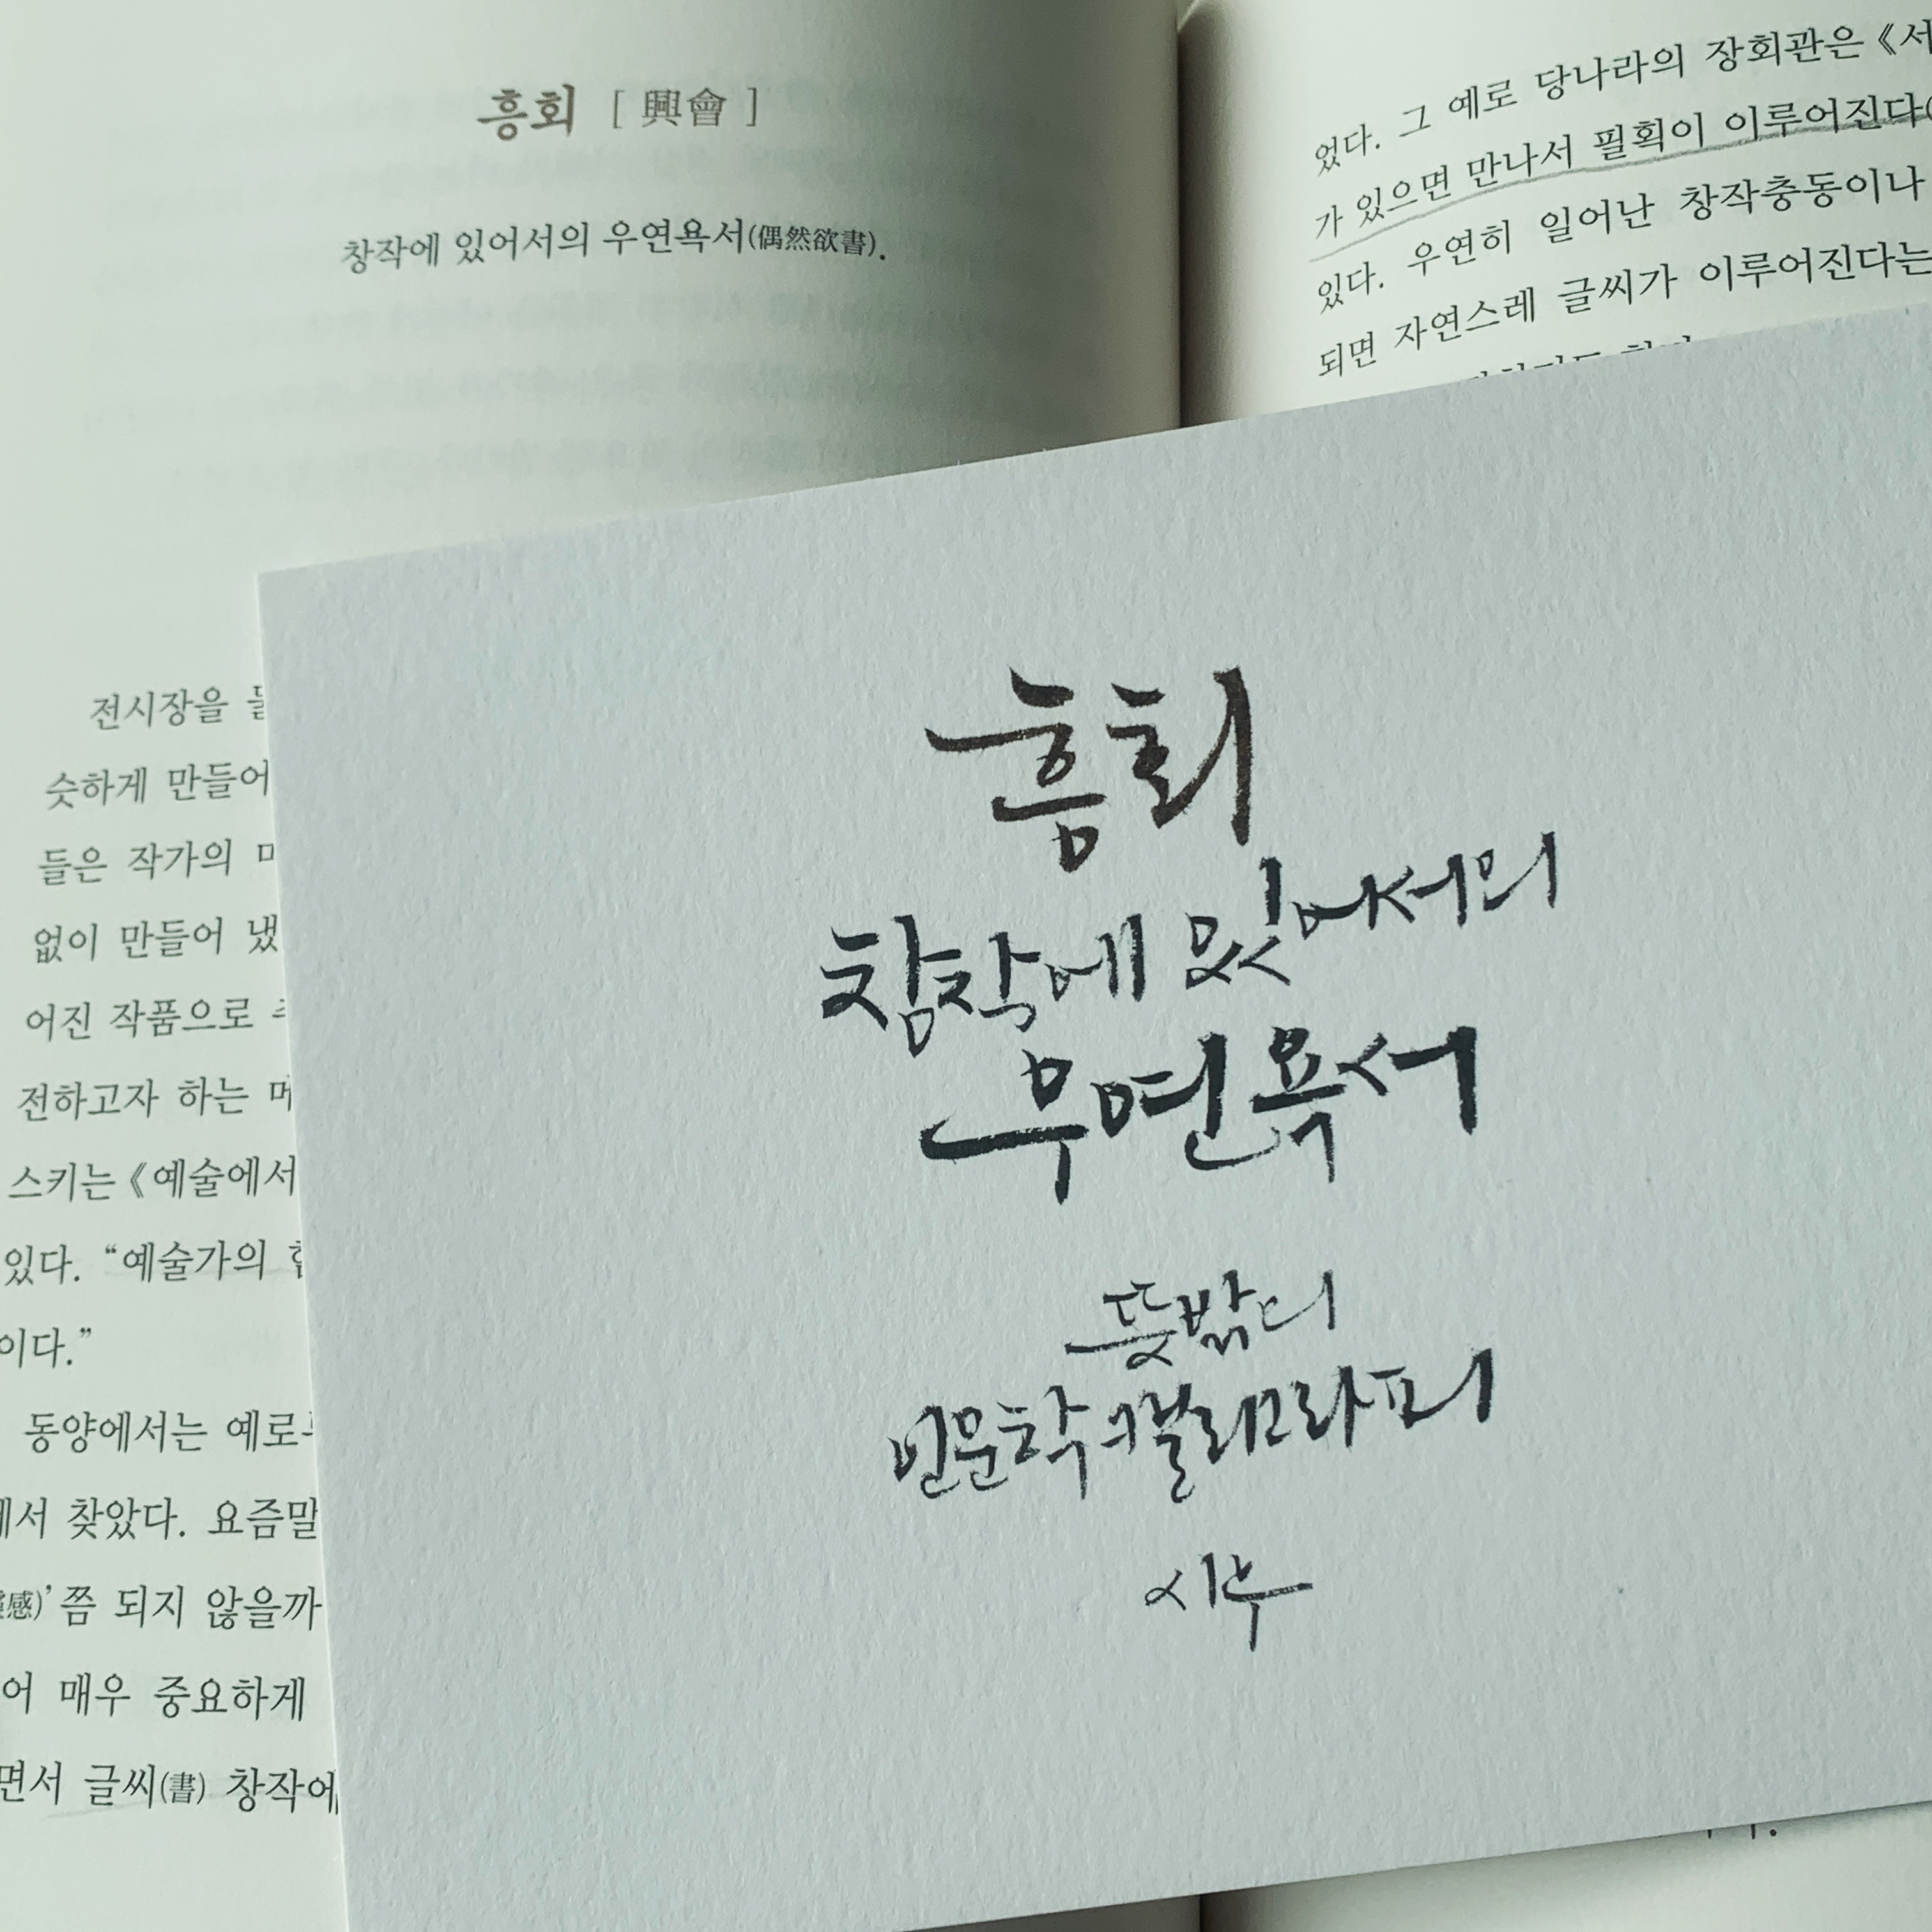 흥회 [ 興會 ]
창작에 있어서의 우연욕서(偶然欲書).
전시장을
숫하게 만들어
들은 작가의
없이 만들어 냈
어진 작품으로
전하고자 하는
스키는 《예술에서
있다. “예술가의
이다.”
동양에서는 예로
에서 찾았다. 요즘말
感)’쯤 되지 않을까
어 매우 중요하게
면서 글씨(書) 창작에
었다. 그 예로 당나라의 장회관은 《서
가 있으면 만나서 필획이 이루어진다(
있다. 우연히 일어난 창작충동이나
되면 자연스레 글씨가 이루어진다는
흥회
창작에 있어서의
우연욕서
뜻밖의
인문학 캘리그라피
시우